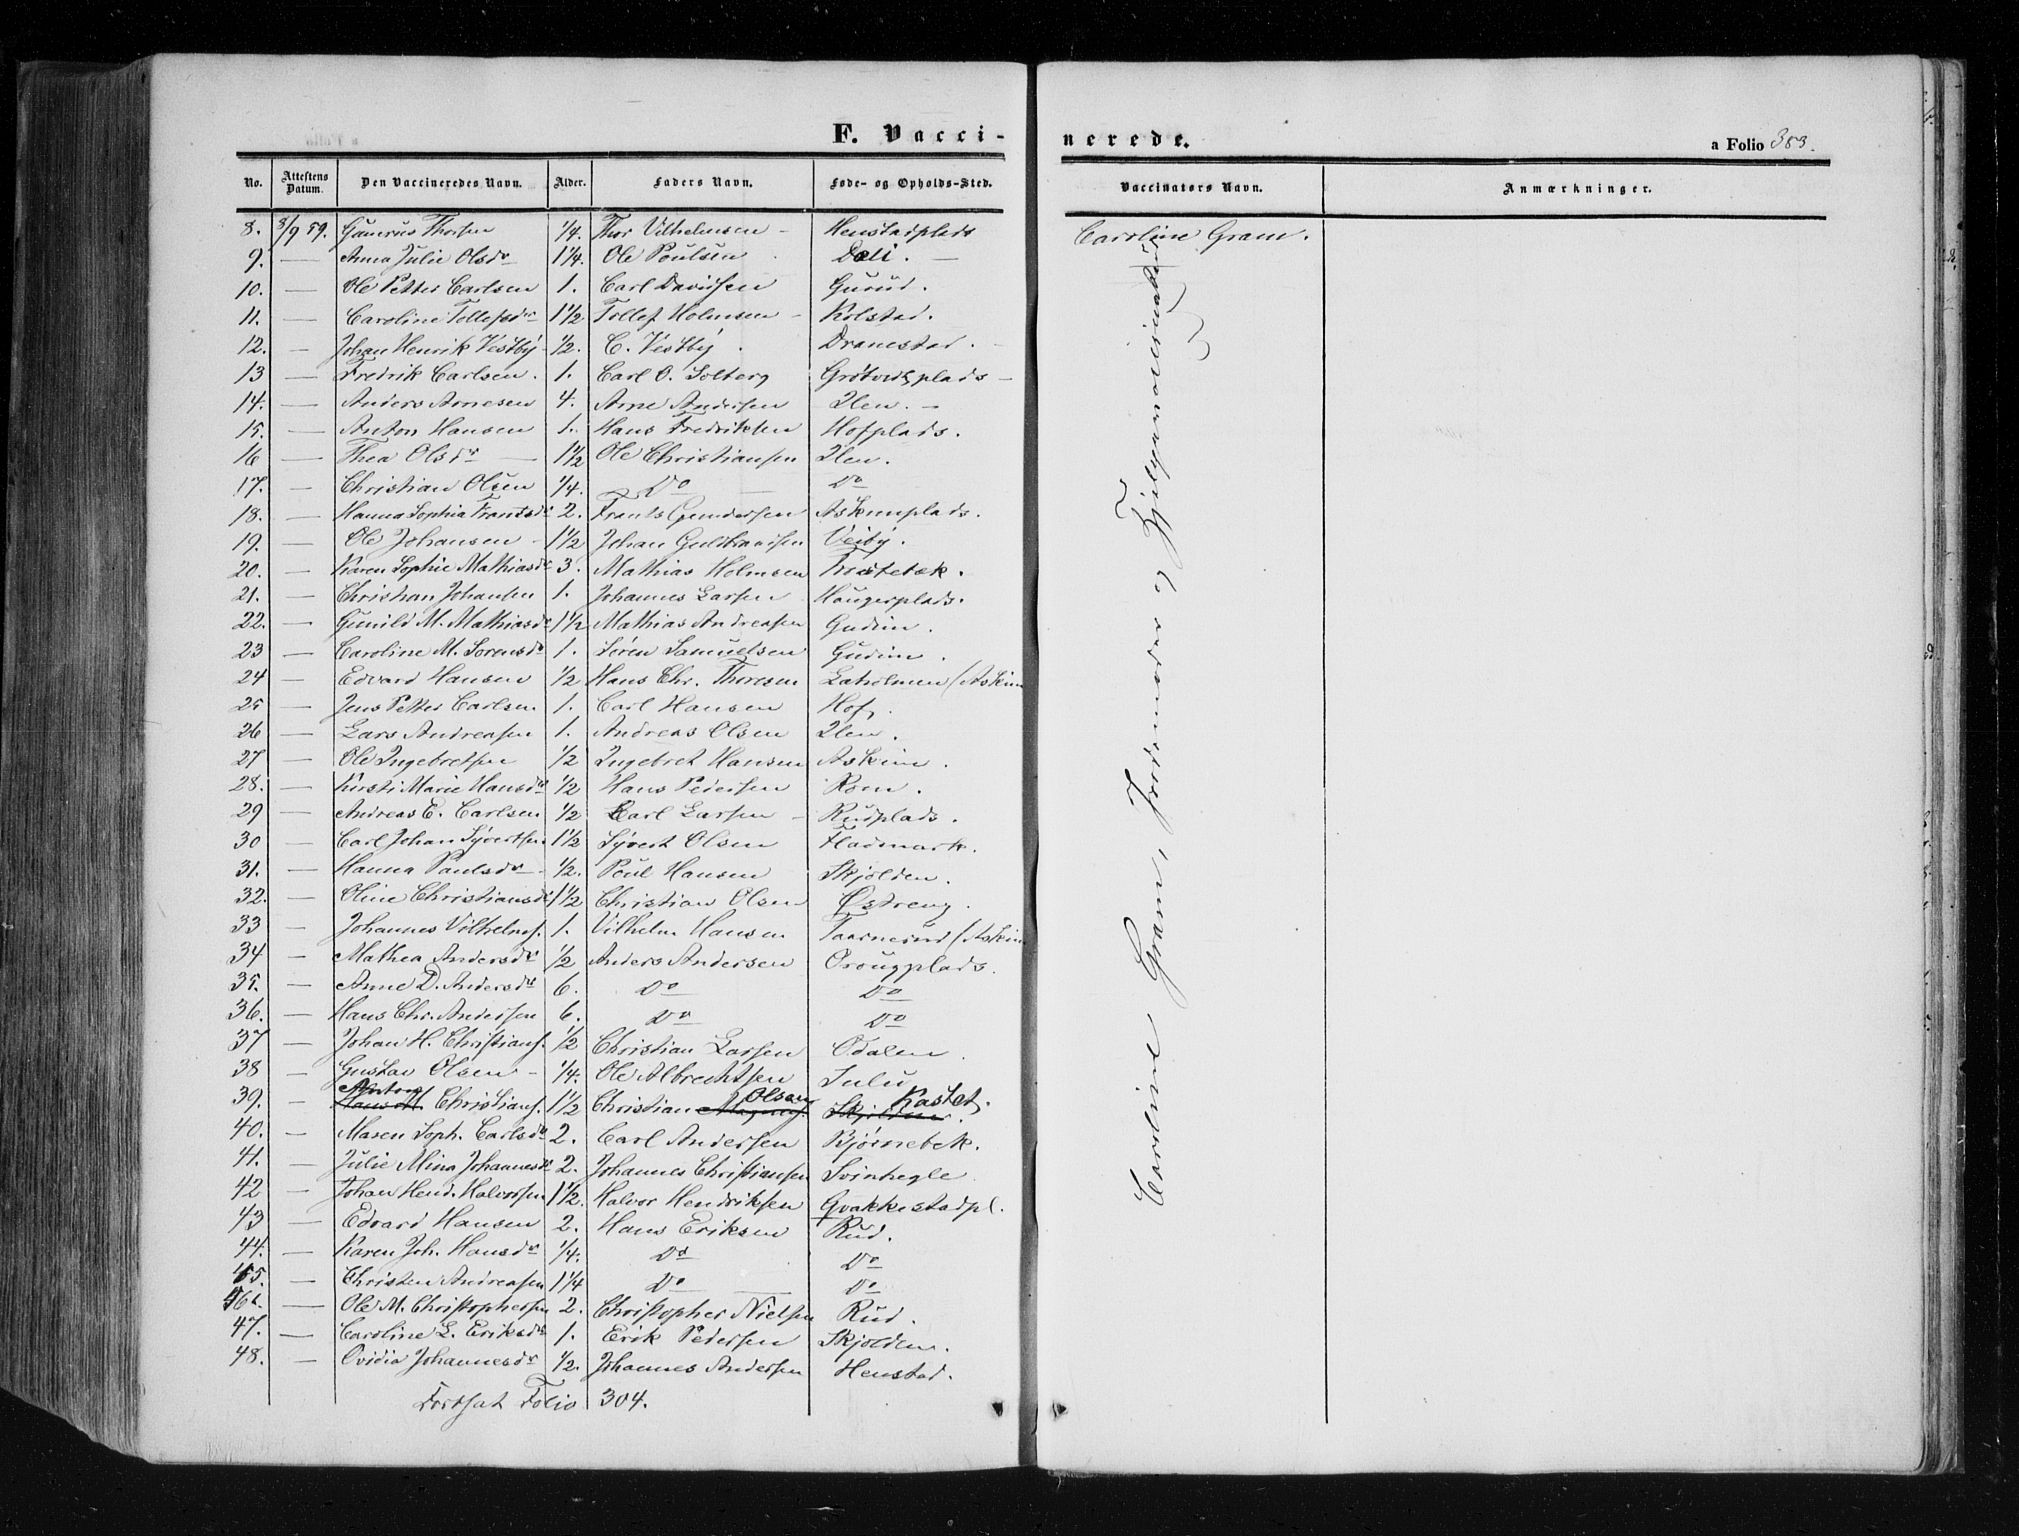 F. Vacci-
nerede.
a Folio 383.
No. Attestens Datum. Den Vaccineredes Navn. Alder. Faders Navn. Føde- og Opholds-Sted. Vaccinators Navn. Anmærkninger.
8. 8/9 59. Gunerius Thorsen 1/4. Thor Vilhelmsen - Henstadplads Caroline Gram.
9. — Anna Julie Olsdr 1 1/4. Ole Poulsen Dæli. —
10. — Ole Petter Carlsen 1. Carl Davidsen Gurud.
11. — Caroline Tollefsdr 1 1/2 Tollef Holmsen - Kolstad.
12. — Johan Henrik Vestby 1/2. C. Vestby. Dranestad. -
13 — Fredrik Carlsen. 1. Carl O. Solberg Grøtvedtplads -
14. — Anders Arnesen 4. Arne Andersen Ilen. -
15. — Anton Hansen 1. Hans Fredriksen Hofplads.
16 — Thea Olsdr — 1 1/2 Ole Christiansen Ilen.
17. — Christian Olsen 1/4. Do — Do
18. — Hanna Sophia Frantsdr 2. Frants Gundersen Askimplads.
19. — Ole Johansen - 1 1/2 Johan Guldbrandsen Veiby.
20. — Karen Sophie Mathiasdr 3. Mathias Holmsen Trostebæk.
21. — Christian Johansen 1. Johannes Larsen Haugerplads.
22. — Gunild M. Mathiasdr 1 1/2 Mathias Andreasen Gudim.
23 — Caroline M. Sorensdr 1. Søren Samuelsen Gudim.
24 — Edvard Hansen 1/2 Hans Chr. Thoresen Laholmen (Askim
25 — Jens Petter Carlsen 1. Carl Hansen Hof.
26 — Lars Andreasen 1. Andreas Olsen Ilen.
27 — Ole Ingebretsen 1/2 Ingebret Hansen Askim.
28. — Kirsti Marie Hansdr 1/2 Hans Pedersen Rom.
29 — Andreas E. Carlsen 1/2 Carl Larsen - Rudplads.
30 — Carl Johan Syvertsen 1 1/2 Syvert Olsen Hadmark.
31. — Hanna Paulsdr - 1/2. Poul Hansen Skjolden.
32. — Oline Christiansdr 1 1/2 Christian Olsen Østreng.
33 — Johannes Vilhelms. 1. Vilhelm Hansen Taarnerud (Askim
34 — Mathea Andersdr 1/2 Anders Andersen Ørougplads.
35. — Anne D. Andersdr 6. Do Do
36. — Hans Chr. Andersen 6. Do Do
37 — Johan H. Christians. 1/2 Christian Larsen Odalen.
38 — Gustav Olsen - 1/4. Ole Albrechtsen Sulu
39. — Anton Hans M. Christians. 1 1/2 Christian Magnus. Olsen Skjolden. Kastet.
40. — Maren Soph. Carlsdr 2. Carl Andersen Bjørnebek.
41. — Julie Mina Johannesdr 2. Johannes Christiansen Svinhegle
42 — Johan Hend. Halvorsen 1 1/2. Halvor Hendriksen Gvakkestadpl.
43 — Edvard Hansen 2. Hans Eriksen Rud.
44. — Karen Joh. Hansdr 1/4. Do Do
45. — Christen Andreasen 1 1/4 Do — Do
46. — Ole M. Christophersen 2. Christopher Nielsen Rud.
47. — Caroline L. Eriksdr 1. Erik Pedersen Skjolden.
48. — Ovidia Johannesdr 1/2. Johannes Andersen Henstad.
Fortsat Folio 304.
Caroline Gram, Jordemoder og